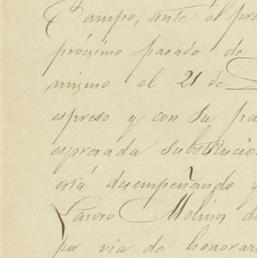 Campo, ante el pro
próximo pasado de
mismo el 21 de
espreso y con su pa
espresada substitucio
está desempeñando y
Lauro Molina d
por via de honorar